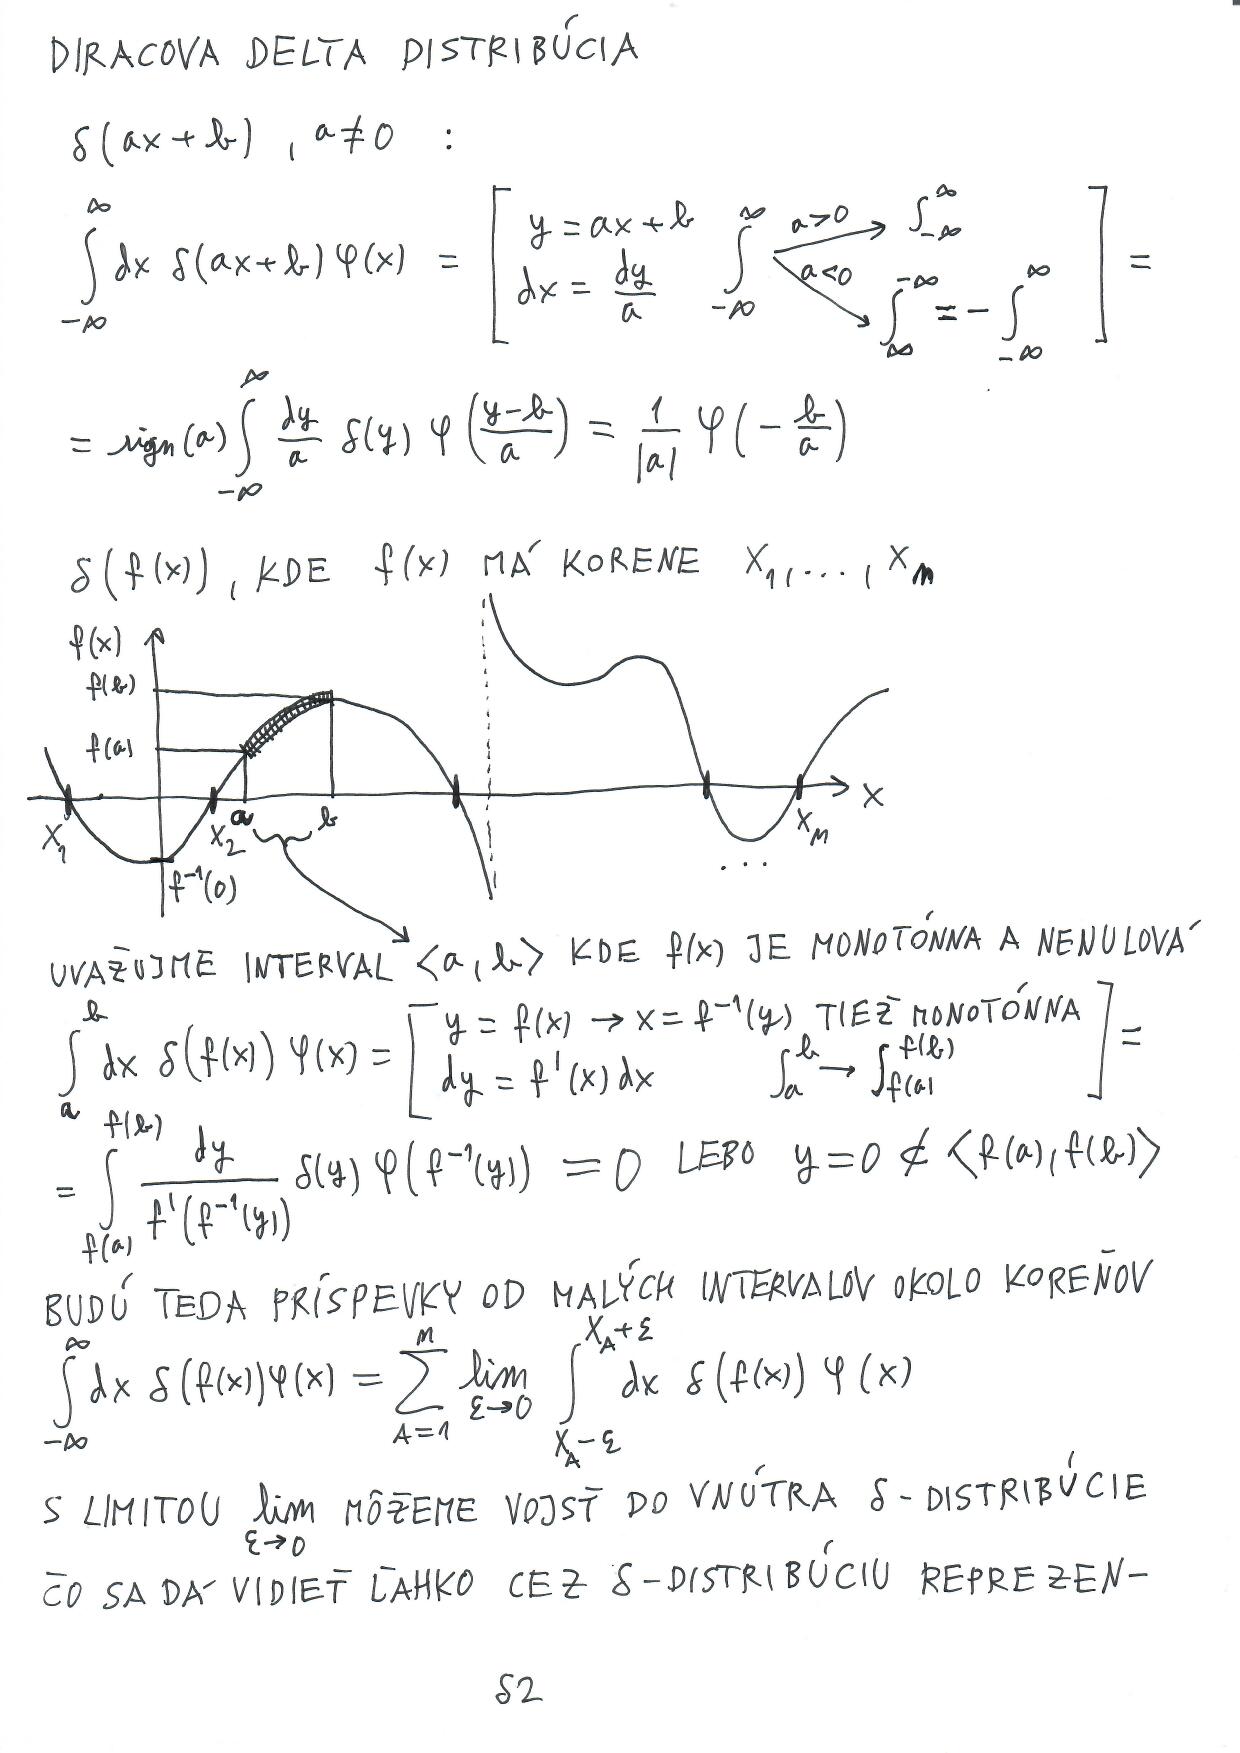 DIRACOVA DELTA DISTRIBÚCIA
δ(ax+b), a≠0 :
∫_{-∞}^{∞} dx δ(ax+b) φ(x) = [ y = ax+b  dx = dy/a  ∫_{-∞}^{∞} a>0 → ∫_{-∞}^{∞}  a<0 → ∫_{∞}^{-∞} = -∫_{-∞}^{∞} ] =
= sign(a) ∫_{-∞}^{∞} dy/a δ(y) φ((y-b)/a) = 1/|a| φ(-b/a)
δ(f(x)), KDE f(x) MÁ KORENE x₁,...,xₙ
f(x)
f(b)
f(a)
x₁ x₂ a b xₙ x
f⁻¹(0) ...
UVAŽUJME INTERVAL <a,b> KDE f(x) JE MONOTÓNNA A NENULOVÁ
∫_{a}^{b} dx δ(f(x)) φ(x) = [ y = f(x) → x = f⁻¹(y) TIEŽ MONOTÓNNA  dy = f'(x) dx  ∫_{a}^{b} → ∫_{f(a)}^{f(b)} ] =
= ∫_{f(a)}^{f(b)} dy/f'(f⁻¹(y)) δ(y) φ(f⁻¹(y)) = 0 LEBO y=0 ∉ <f(a),f(b)>
BUDÚ TEDA PRÍSPEVKY OD MALÝCH INTERVALOV OKOLO KOREŇOV
∫_{-∞}^{∞} dx δ(f(x)) φ(x) = ∑_{A=1}^{n} lim_{ε→0} ∫_{x_A-ε}^{x_A+ε} dx δ(f(x)) φ(x)
S LIMITOU lim_{ε→0} MÔŽEME VOJSŤ DO VNÚTRA δ-DISTRIBÚCIE
ČO SA DÁ VIDIEŤ ĽAHKO CEZ δ-DISTRIBÚCIU REPREZEN-
δ2